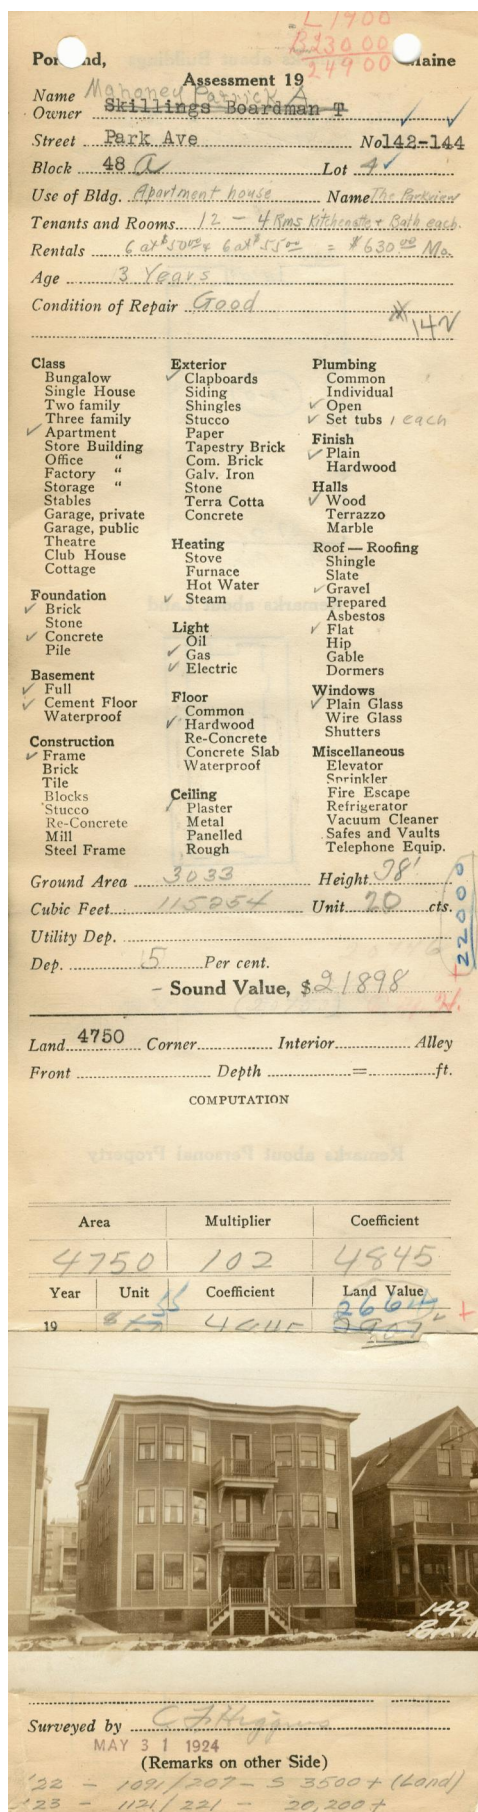 L 1900
B 23000
24900
Portland, Maine
Assessment 19
Mahoney Patrick A
Name
Owner Skillings Boardman T
Street Park Ave No 142-144
Block 48 a Lot 4
Use of Bldg. Apartment house Name The Parkview
Tenants and Rooms 12 - 4 Rms Kitchenette + Bath each.
Rentals 6 at $50.00 & 6 at $55.00 = $630.00 Mo.
Age 3 Years
Condition of Repair Good
142
Class
Bungalow
Single House
Two family
Three family
✓ Apartment
Store Building
Office "
Factory "
Storage "
Stables
Garage, private
Garage, public
Theatre
Club House
Cottage
Foundation
✓ Brick
Stone
✓ Concrete
Pile
Basement
✓ Full
✓ Cement Floor
Waterproof
Construction
✓ Frame
Brick
Tile
Blocks
Stucco
Re-Concrete
Mill
Steel Frame
Exterior
✓ Clapboards
Siding
Shingles
Stucco
Paper
Tapestry Brick
Com. Brick
Galv. Iron
Stone
Terra Cotta
Concrete
Heating
Stove
Furnace
Hot Water
✓ Steam
Light
Oil
✓ Gas
✓ Electric
Floor
Common
✓ Hardwood
Re-Concrete
Concrete Slab
Waterproof
Ceiling
✓ Plaster
Metal
Panelled
Rough
Plumbing
Common
Individual
✓ Open
✓ Set tubs 1 each
Finish
✓ Plain
Hardwood
Halls
✓ Wood
Terrazzo
Marble
Roof — Roofing
Shingle
Slate
✓ Gravel
Prepared
Asbestos
✓ Flat
Hip
Gable
Dormers
Windows
✓ Plain Glass
Wire Glass
Shutters
Miscellaneous
Elevator
Sprinkler
Fire Escape
Refrigerator
Vacuum Cleaner
Safes and Vaults
Telephone Equip.
Ground Area 3033 Height 38'
Cubic Feet 115254 Unit 20 cts.
22000
Utility Dep.
Dep. 5 Per cent.
Sound Value, $ 21898
Land 4750 Corner Interior Alley
Front Depth = ft.
COMPUTATION
Area Multiplier Coefficient
4750 102 4845
Year Unit Coefficient Land Value
55 2664
19 $ 4845 2907
142
Park
Surveyed by C F Higgins
MAY 31 1924
(Remarks on other Side)
'22 - 1091/207 - S 3500+ (Land)
'23 - 1121/221 - 20,200+